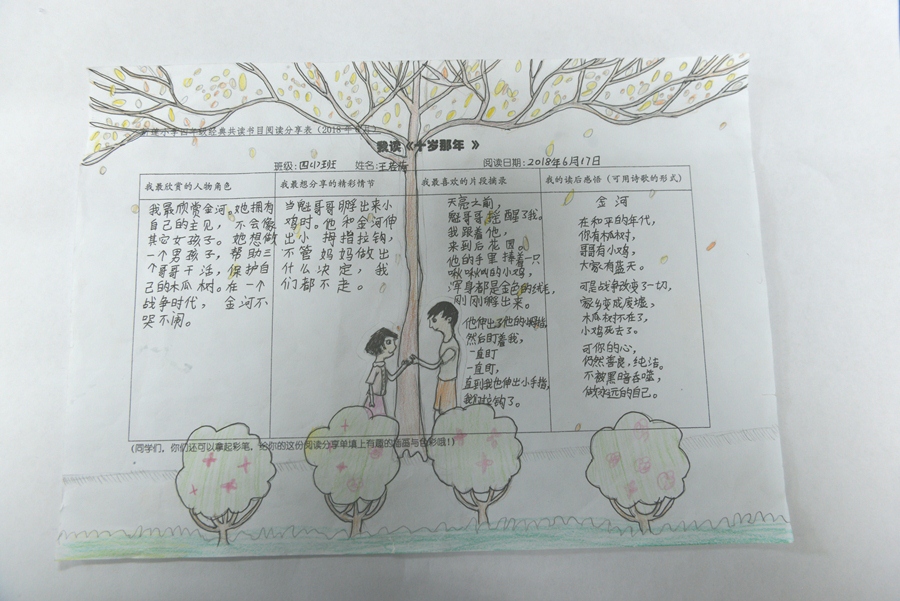 四年级经典共读书目阅读分享表（2018年
我读《十岁那年 》
班级:四(1)班 姓名: 阅读日期:2018年6月17日
我最欣赏的人物角色
我最欣赏金河。她拥有
自己的主见，不会像
其它女孩子。她想做
一个男孩子，帮助三
个哥哥干活，保护自
己的木瓜树。在一个
战争时代，金河不
哭不闹。
我最想分享的精彩情节
当魁哥哥孵出来小
鸡时。他和金河伸
出小拇指拉钩，
不管妈妈做出
什么决定，我
们都不走。
我最喜欢的片段摘录
天亮之前，
魁哥哥摇醒了我。
我跟着他，
来到后花园。
他的手里捧着一只
啾啾叫的小鸡，
浑身都是金色的绒毛，
刚刚孵出来。
他伸出了他的小拇指，
然后盯着我，
一直盯
一直盯，
直到我也伸出小手指，
我们拉钩了。
我的读后感悟（可用诗歌的形式）
金河
在和平的年代，
你有木瓜树，
哥哥有小鸡，
大家有蓝天。
可是战争改变了一切，
家乡变成废墟，
木瓜树不在了，
小鸡死去了。
可你的心，
仍然善良，纯洁。
不被黑暗吞噬，
做永远的自己。
(同学们，你们还可以拿起彩笔，给你的这份阅读分享单填上有趣的插画与色彩哦!)